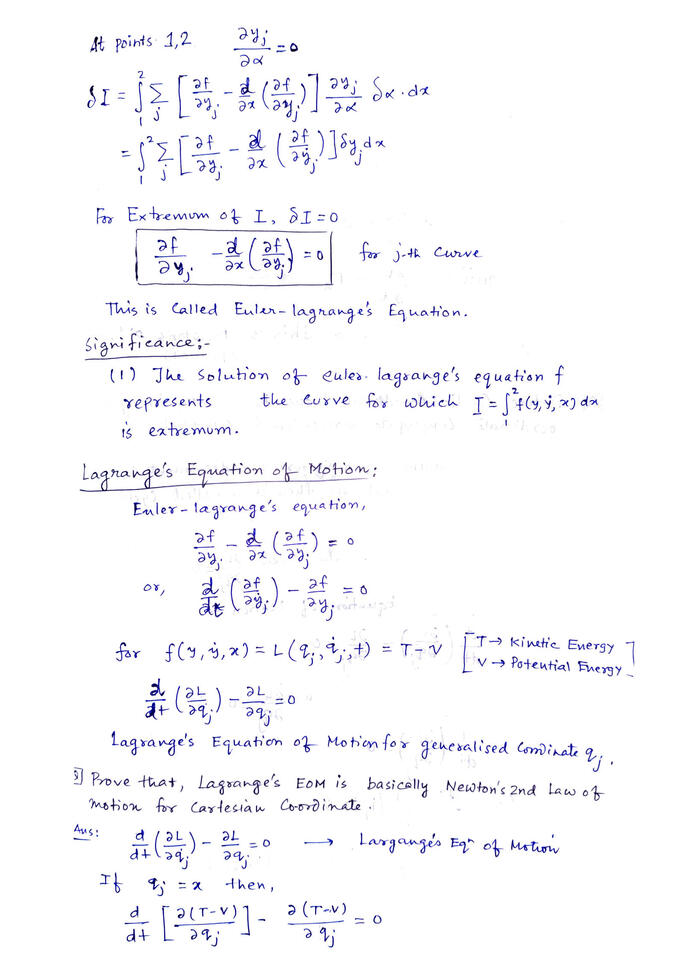 At points 1,2 ∂y_j/∂α = 0
δI = ∫₁² Σ_j [∂f/∂y_j - d/∂x (∂f/∂ẏ_j)] ∂y_j/∂α δα·dx
= ∫₁² Σ_j [∂f/∂y_j - d/∂x (∂f/∂ẏ_j)] δy_j dx
For Extremum of I, δI = 0
∂f/∂y_j - d/∂x (∂f/∂ẏ_j) = 0 for j-th curve
This is Called Euler-lagrange's Equation.
Significance:-
(1) The Solution of euler-lagrange's equation f
represents the curve for which I = ∫₁² f(y, ẏ, x) dx
is extremum.
Lagrange's Equation of Motion:
Euler-lagrange's equation,
∂f/∂y_j - d/∂x (∂f/∂ẏ_j) = 0
or, d/dt (∂f/∂ẏ_j) - ∂f/∂y_j = 0
for f(y, ẏ, x) = L(q_j, q̇_j, t) = T-V [T → Kinetic Energy
V → Potential Energy]
d/dt (∂L/∂q̇_j) - ∂L/∂q_j = 0
Lagrange's Equation of Motion for generalised Coordinate q_j.
3] Prove that, Lagrange's EOM is basically Newton's 2nd Law of
motion for Cartesian Co-ordinate.
Ans: d/dt (∂L/∂q̇_j) - ∂L/∂q_j = 0 → Largange's Eqⁿ of Motion
If q_j = x then,
d/dt [∂(T-V)/∂q̇_j] - ∂(T-V)/∂q_j = 0